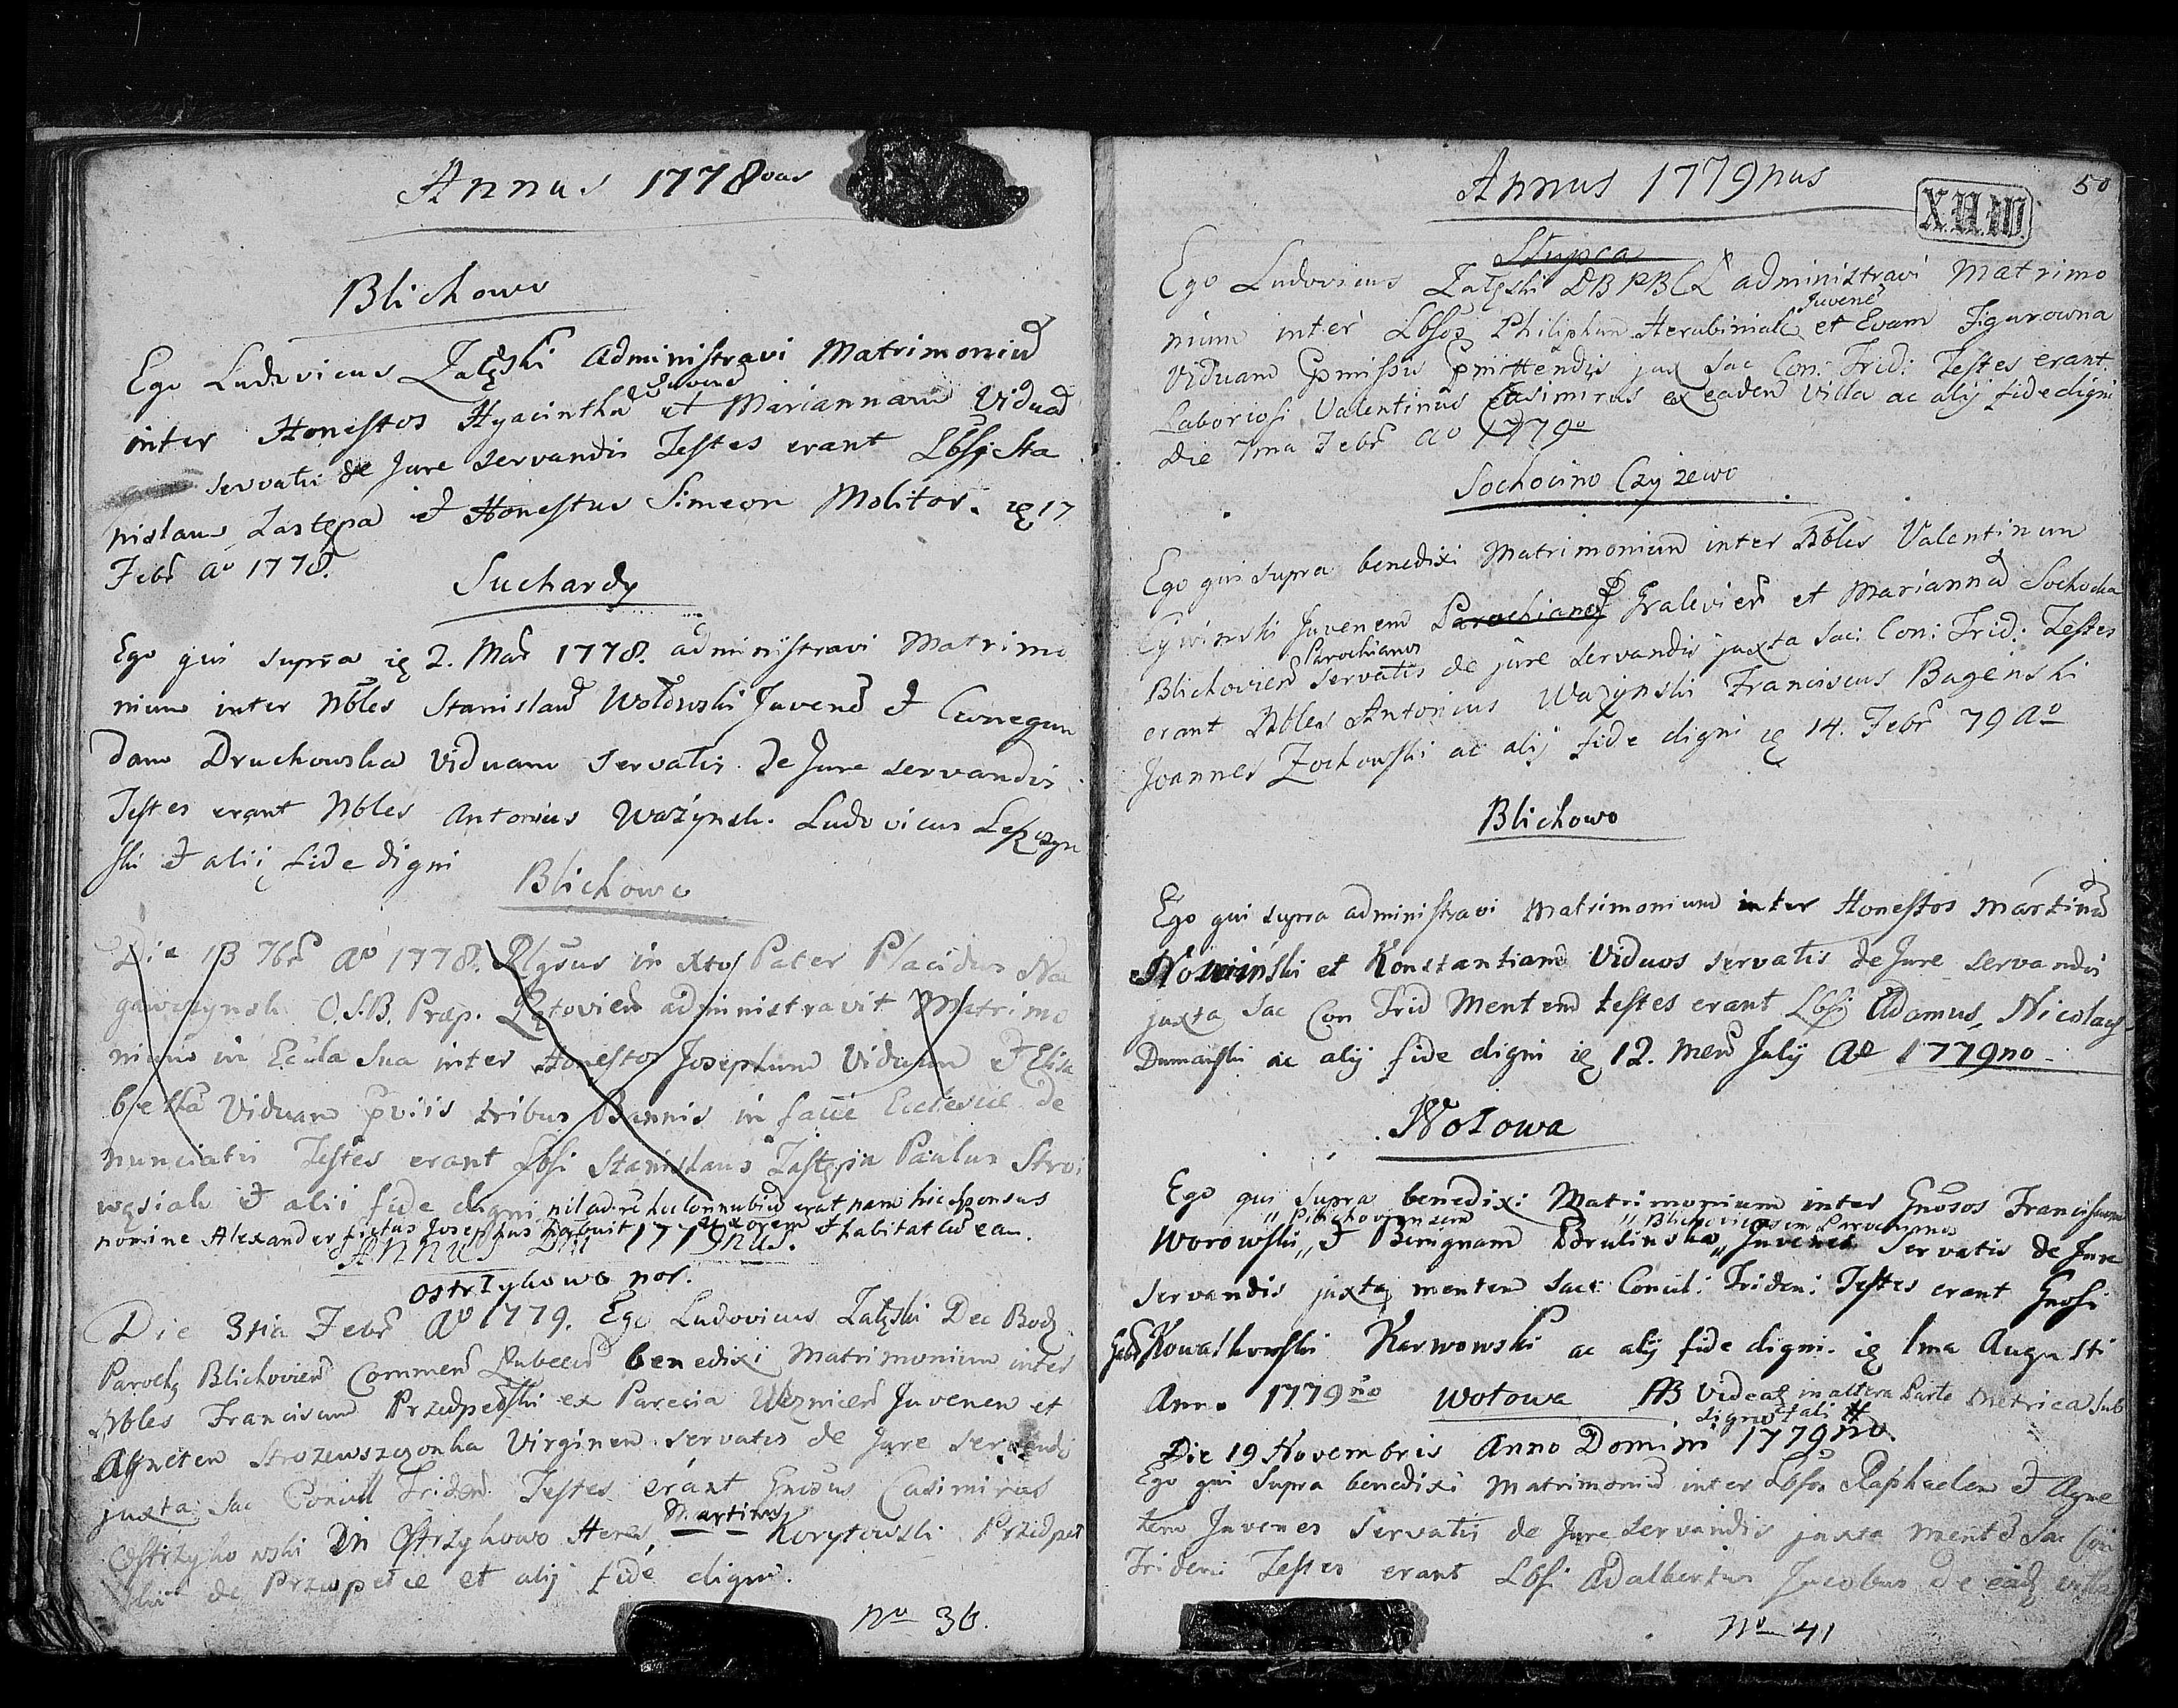 Annus 1778vus
Blichowo
Ego Ludovicus Załęski administravi Matrimoniũ
inter Honestos Hyacinthũ Juvenẽ et Mariannam Viduã
servatis de Jure servandis Testes erant Lbsi Sta
nislaus Zastępa et Honestus Simeon Molitor. 17
Febr Ao 1778.
Suchardy
Ego qui supra 2. Mar 1778. administravi Matrimo
nium inter Nbles Stanislaũ Wołowski Juvenẽ et Cunegun
dam Druchowska Viduam servatis de Jure servandis
Testes erant Nbles Antonius Ważynsk. Ludovicus Lepczyn
ski et alii fide digni
Blichowo
Die 13 7br Ao 1778. Rlgsus in Xto Pater Placidus Na
gawczynsk O.S.B. Præp. administravit Matrimo
nium in Eccla sua inter Honestos Josephum Viduum et Elisa
bettã Viduam pviis tribus Bannis in facie Ecclesiæ de
nunciatis Testes erant Lbsi Stanislaus Zastępa Paulus Stro
wąsiak et alii fide digni nil ad rẽ hoc Connubiũ erat nam hic sponsus
nomine Alexander fictus Josephus habuit uxorem et habitat cũ ea.
Annus Dni 1779nus.
Ostrzykowo nor.
Die 3tia Febr Ao 1779. Ego Ludovicus Załęski Dec Bodz
Paroch Blichovien Commen benedixi Matrimonium inter
Nbles Franciscum Przedpełski ex Parecia Juvenem et
Agneten Strozewszczonka Virginem servatis de Jure servandis
juxta Sac Concil Triden. Testes erant Gnosus Casimirus
Ostrzykowski in Ostrzykowo Heres, Martinus Korytowski Przedpeł
ski de Przedpełcie et alij fide digni.
No 36.
Annus 1779nus
50
X.U.W.
Słupca
Ego Ludovicus Załęski DBPBCL administravi Matrimo
nium inter Lbsos Philiphum Herubiniak Juvenẽ et Evam Figurowna
Viduam pmissis pmittendis jux Sac Con: Trid: Testes erant
Laboriosi Valentinus Casimirus ex eadem Villa ac alij fide digni
Die 7ma Febr Ao 1779o
Sochocino Czyżewo
Ego qui supra benedixi Matrimonium inter Nbles Valentinum
Cywinski Juvenem Parochianos Gralevien et Mariannã Sochocka
Blichovien Parochianos servatis de jure servandis juxta Sac: Con: Trid: Testes
erant Nbles Antonius Ważynski Franciscus Bagenski
Joannes Zochowski ac alij fide digni 14. Febr 79 Ao
Blichowo
Ego qui supra administravi Matrimonium inter Honestos Martinũ
Nowinski et Konstantiam Viduos servatis de Jure servandis
juxta Sac Con Trid Mentem testes erant Lbsi Adamus, Nicolaus
Dumanski ac alij fide digni 12. Men Julij Ao 1779no
Wołowa
Ego qui supra benedixi Matrimonium inter Gnosos Franciscum
Worowski „Pilichoviensem et Benignam Brulinska „Blichoviensem Parochianos Juvenes servatis de Jure
servandis juxta mentem Sac: Concil: Triden: Testes erant Gnosi
Kowalkowski Karwowski ac alij fide digni. 1ma Augusti
Ann. 1779no Wołowa NB Videas in altera Parte Metrica sub
signo tali #
Die 19 Novembris Anno Domini 1779no.
Ego qui supra benedixi Matrimoniũ inter Lbsos Raphaelem et Agne
tem Juvenes servatis de Jure servandis juxta mentẽ Sac Con
Triden: Testes erant Lbsi Adalbertus Jacobus de eadẽ villa
No 41